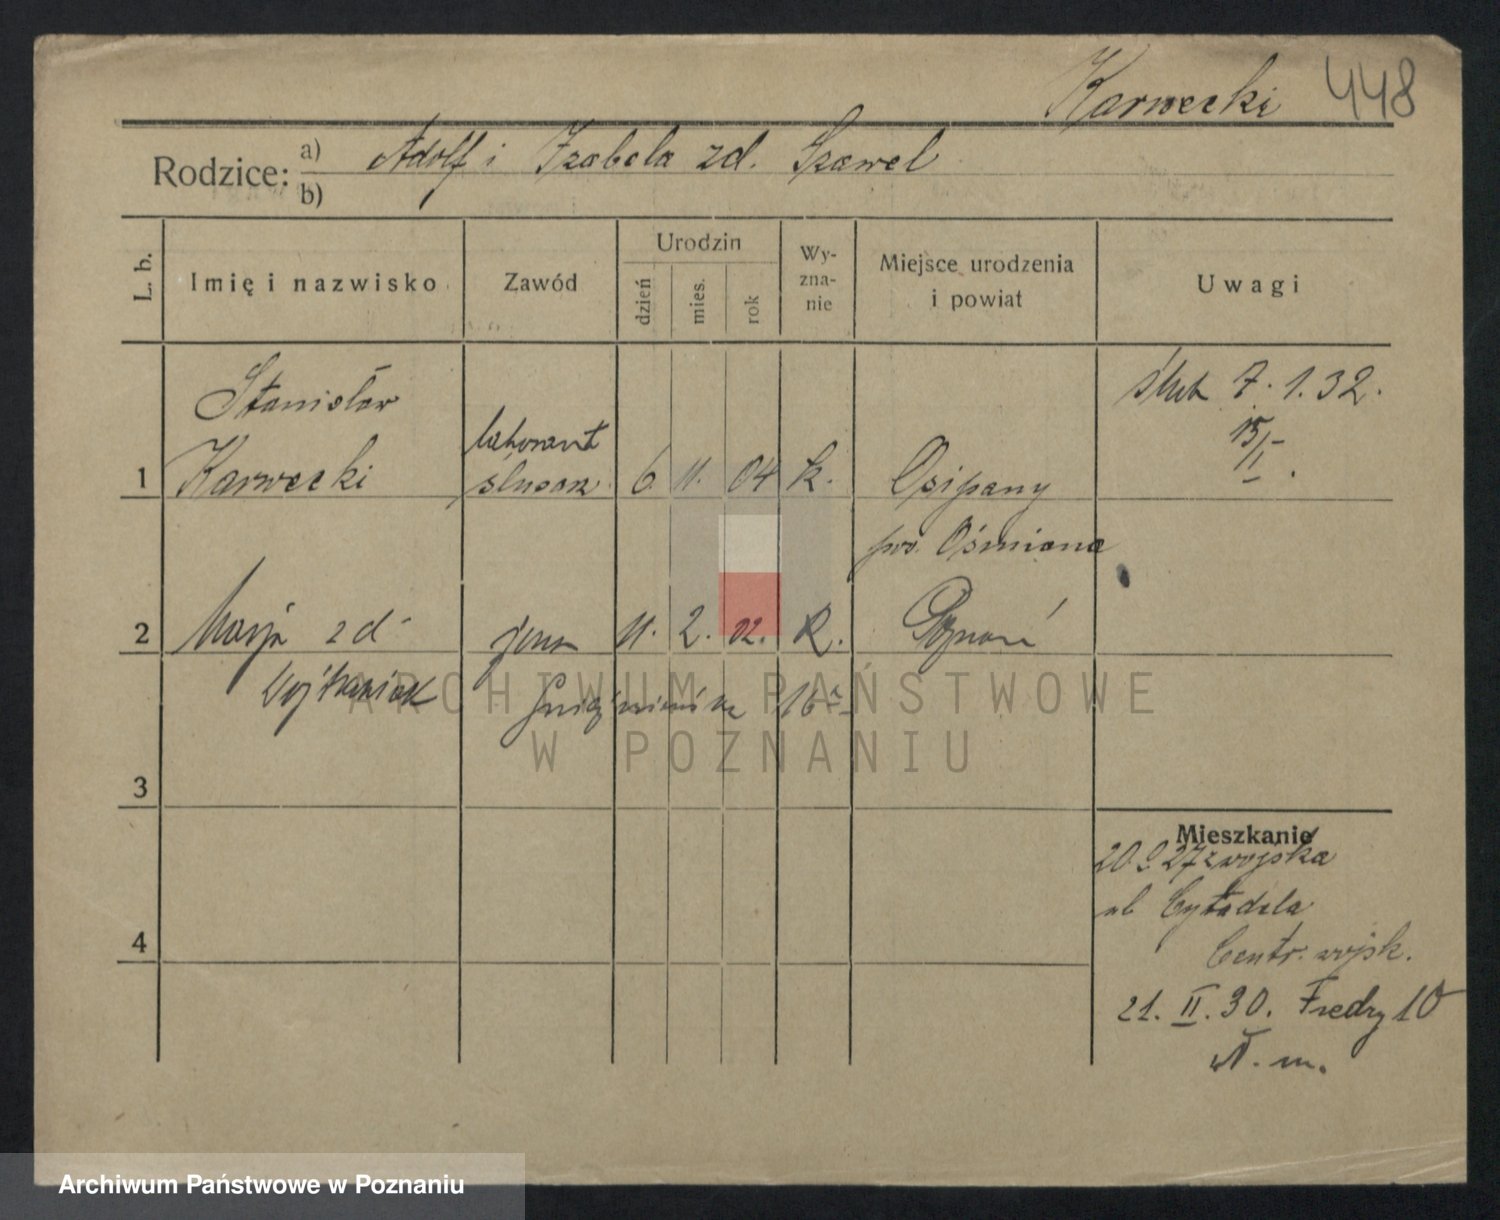 Karwecki 448
Rodzice: a) Adolf i Izabela zd. Szawel
b)
L. b. Imię i nazwisko Zawód Urodzin dzień mies. rok Wy-zna-nie Miejsce urodzenia i powiat Uwagi
Stanisław
ślub 7. 1. 32.
laborant
15/II.
1 Karwecki ślusarz 6. 11. 04 k. Osipany
pow. Ośmiana
2 Marja zd. żona 11. 2. 02. R. Poznań
Wojtkowiak
16
3
Mieszkanie
20.9.27 z wojska
ul. Cytadela
4
Centr. wojsk.
21. II. 30. Fredry 10
m.
ARCHIWUM PAŃSTWOWE
W POZNANIU
Archiwum Państwowe w Poznaniu